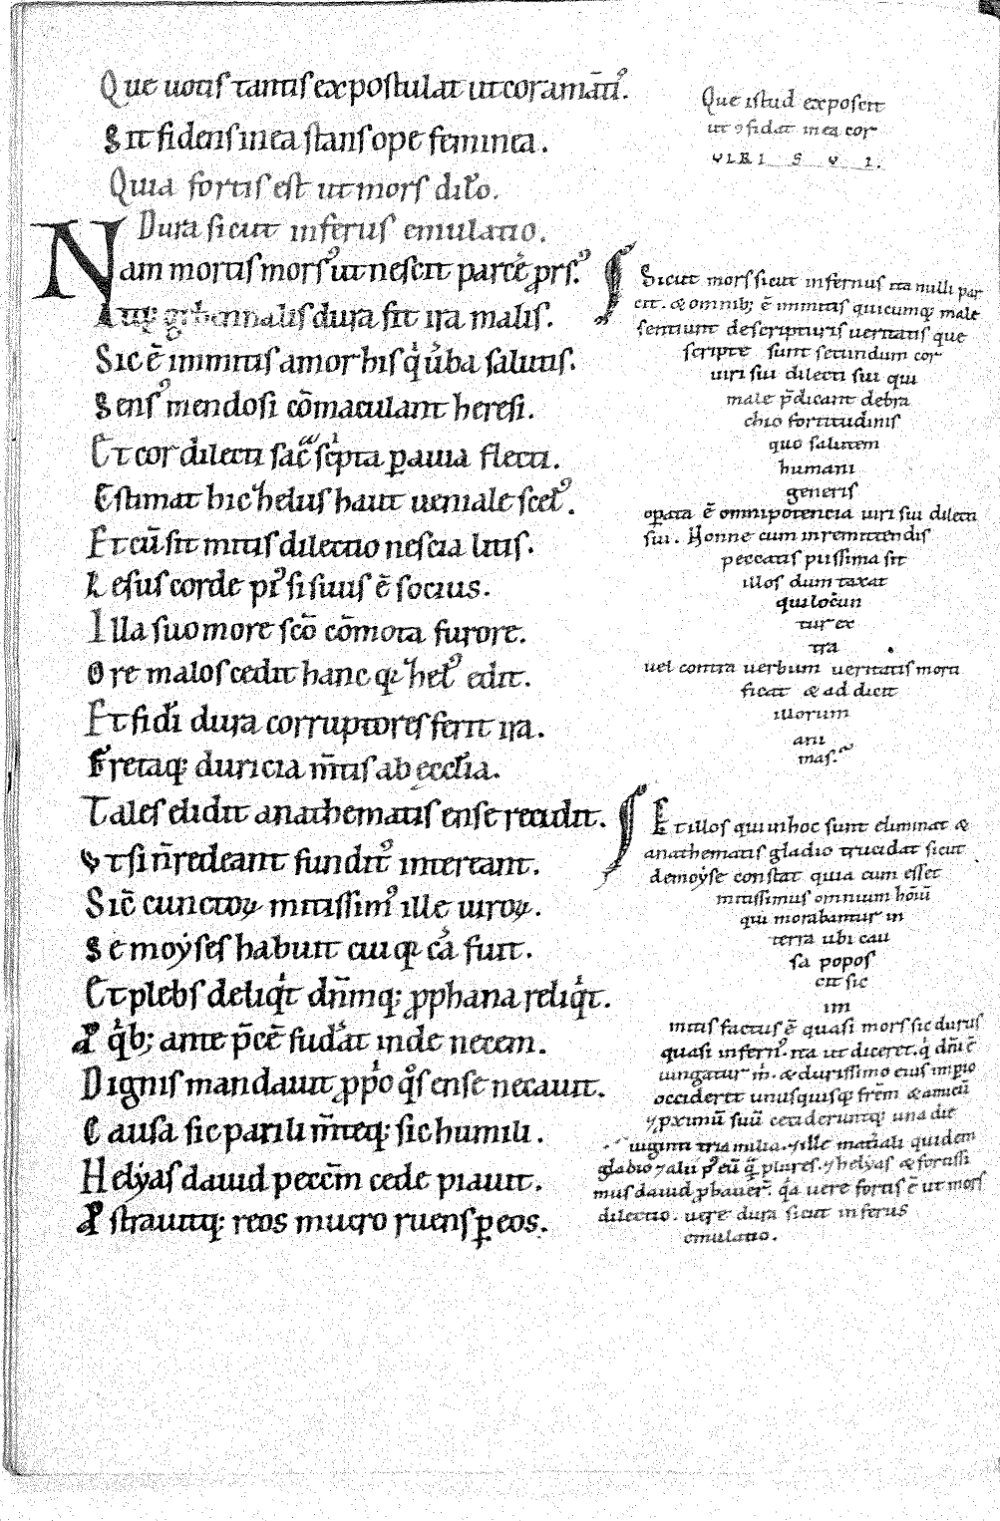 Que uotis tantis expostulat ut cor amāti᷒.
Sit fidens in ea stans ope feminea.
Quia fortis est ut mors dilc̄o.
Dura sicut inferus emulatio.
Nam mortis mors᷒ ut nescit parcē prors᷒.
Atq; gehennalis dura sit ira malis.
Sic ē inmitis amor his q̇ u̇ba salutis.
Sens᷒ mendosi cōmaculant heresi.
Et cor dilecti sac̄ sċpta ꝑ auia flecti.
Estimat hic helus haut ueniale scel᷒.
Et cū sit mitis dilectio nescia litis.
Lesus corde pr̄ si suus ē socius.
Illa suo more sc̄o cōmota furore.
Ore malos cedit hanc q; hel᷒ edit.
Et fid̄i dura corruptores ferit ira.
Fretaq; duricia m̄tis ab eccl̄ia.
Tales elidit anathematis ense recidit.
Ut si n̄ redeant fundit᷒ intereant.
Sic̄ cunctoꝝ mitissim᷒ ille uiroꝝ.
Se moẏses habuit cui q; cā fuit.
Et plebs deliq̇t dn̄mq; ꝓphana reliq̇t.
P q̇b; ante p̄cē sudāt inde necem.
Dignis mandauit ꝓpō q̇s ense necauit.
Causa sic parili m̄teq; sic humili.
Helẏas dauid peccēm cede piauit.
P strauitq; reos mucro ruens ꝑ eos.
Que istud exposcit
ut ꝯfidat in ea cor
VIRI SVI.
Sicut mors sicut infernus ita nulli par
cit. & omnib; ē inmitis quicumq; male
sentiunt de scripturis ueritatis que
scripte sunt secundum cor
uiri sui dilecti sui qui
male p̄dicant de bra
chio fortitudinis
quo salutem
humani
generis
oꝑata ē omnipotencia uiri sui dilecti
sui. Nonne cum in remittendis
peccatis piissima sit
illos dum taxat
qui locūn
tur ex
tra
uel contra uerbum ueritatis morti
ficat & addicit
illorum
ani
mas.
Et illos qui in hoc sunt eliminat &
anathematis gladio trucidat sicut
de moẏse constat quia cum esset
mitissimus omnium hōiū
qui morabantur in
terra ubi cau
sa popos
cit sic
im
mitis factus ē quasi mors sic durus
quasi infern᷒. ita ut diceret. q̇ dn̄i ē
iungatur m̄. & durissimo eius imꝑio
occideret unusquisq; frēm & amicū
⁊ ꝓximū suū cecideruntq; una die
uiginti tria milia. ⁊ ille mat̄iali quidem
gladio ⁊ alii p᷒ eū q̄ plures. ⁊ helẏas & fortissi
mus dauid ꝓbauer̄. q̇a uere fortis ē ut mors
dilectio. uere dura sicut inferus
emulatio.